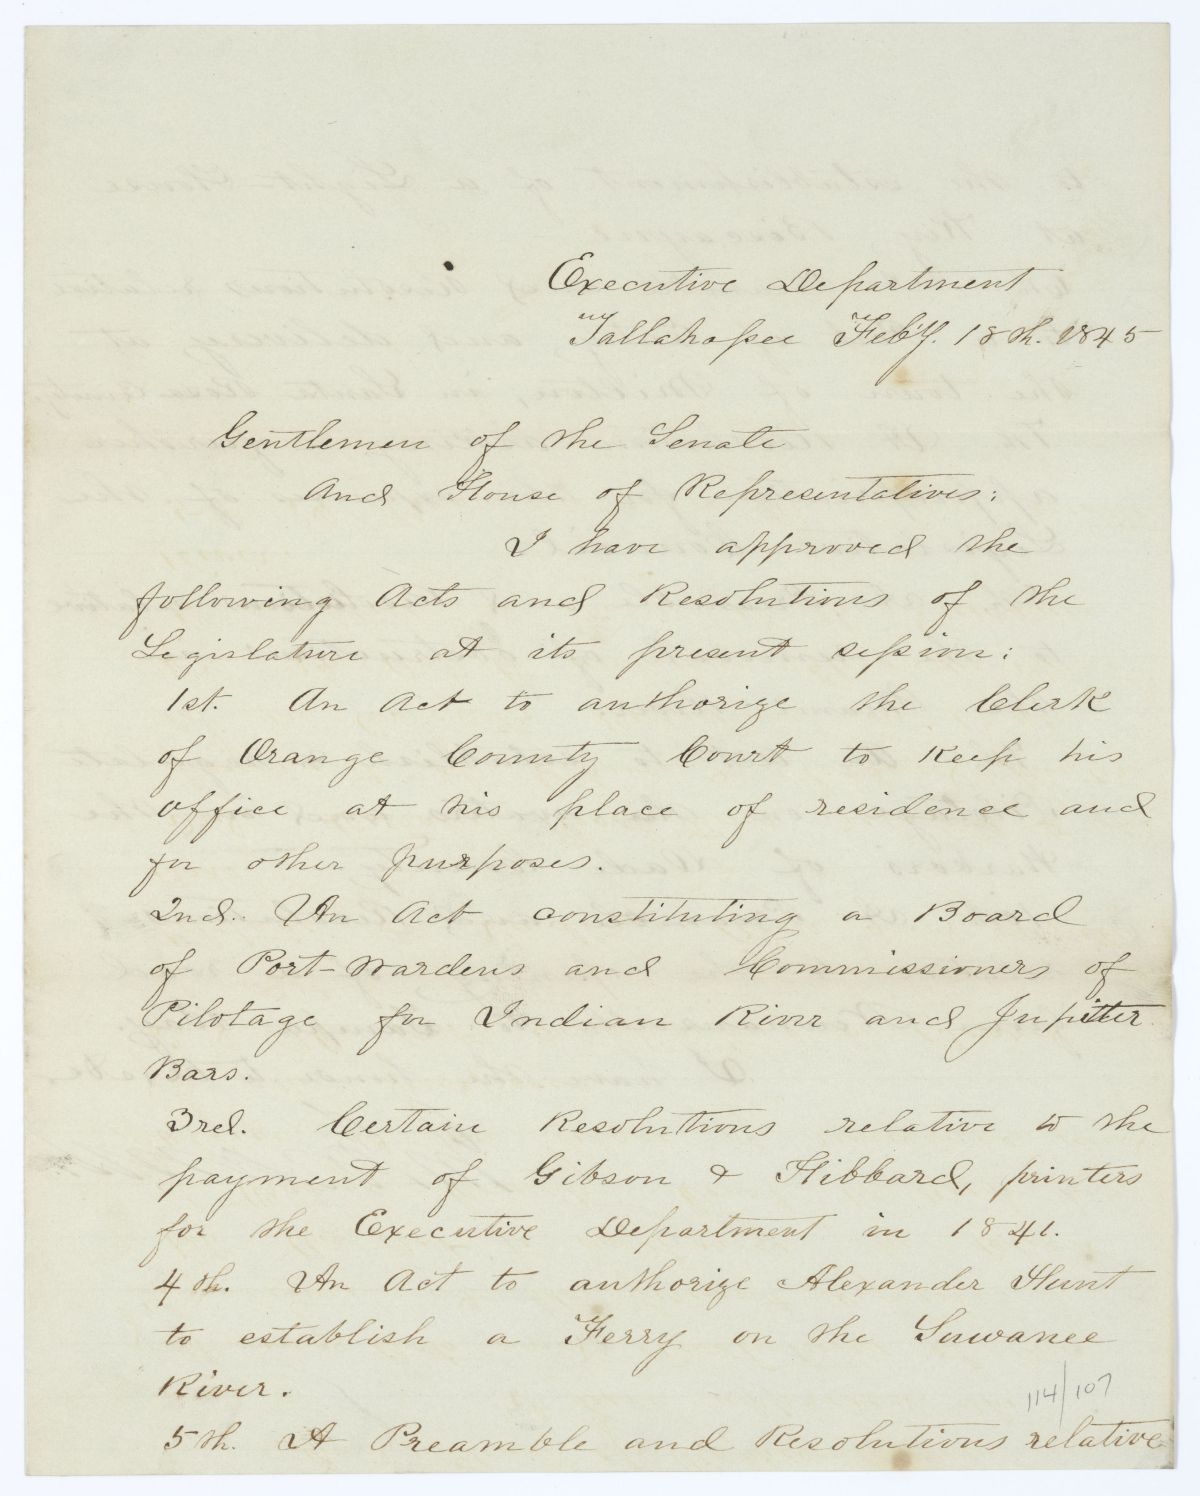 Executive Department
Tallahassee Feb'y. 18th. 1845
Gentlemen of the Senate
And House of Representatives:
I have approved the
following Acts and Resolutions of the
Legislature at its present session:
1st. An Act to authorize the Clerk
of Orange County Court to keep his
office at his place of residence and
for other purposes.
2nd. An Act constituting a Board
of Port-Wardens and Commissioners of
Pilotage for Indian River and Jupiter
Bars.
3rd. Certain Resolutions relative to the
payment of Gibson & Hibbard, printers
for the Executive Department in 1841.
4th. An Act to authorize Alexander Hunt
to establish a Ferry on the Suwanee
River.
114/107
5th. A Preamble and Resolutions relative